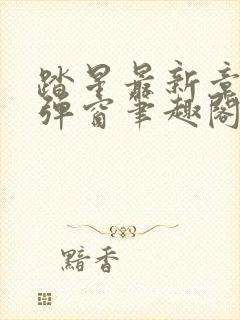 踏星最新章
弹窗笔趣阁
黯香